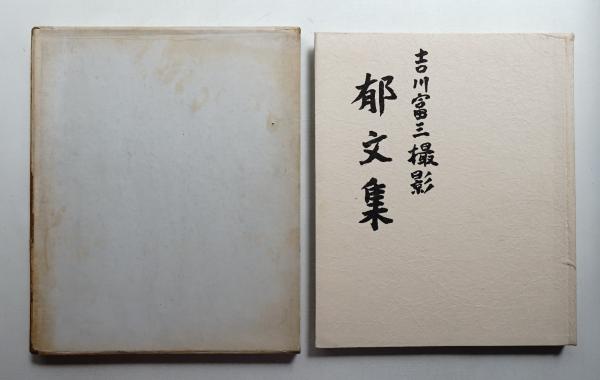 吉川富三撮影
郁文集